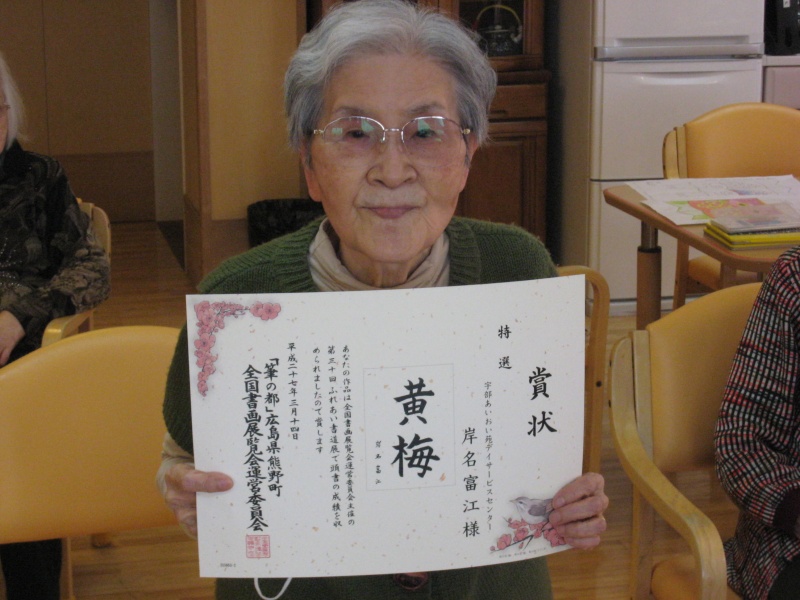 賞状
特選
宇部あいおい苑デイサービスセンター
岸名富江様
黄梅
岸名富江
あなたの作品は全国書画展覧会運営委員会主催の
第三十回ふれあい書道展で頭書の成績を収
められましたので賞します
平成二十七年三月十四日
「筆の都」広島県熊野町
全国書画展覧会運営委員会